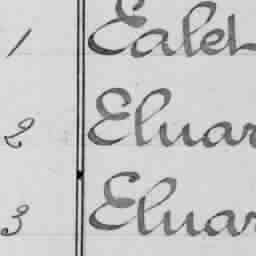 1 Ealet
2 Eluar
3 Eluar